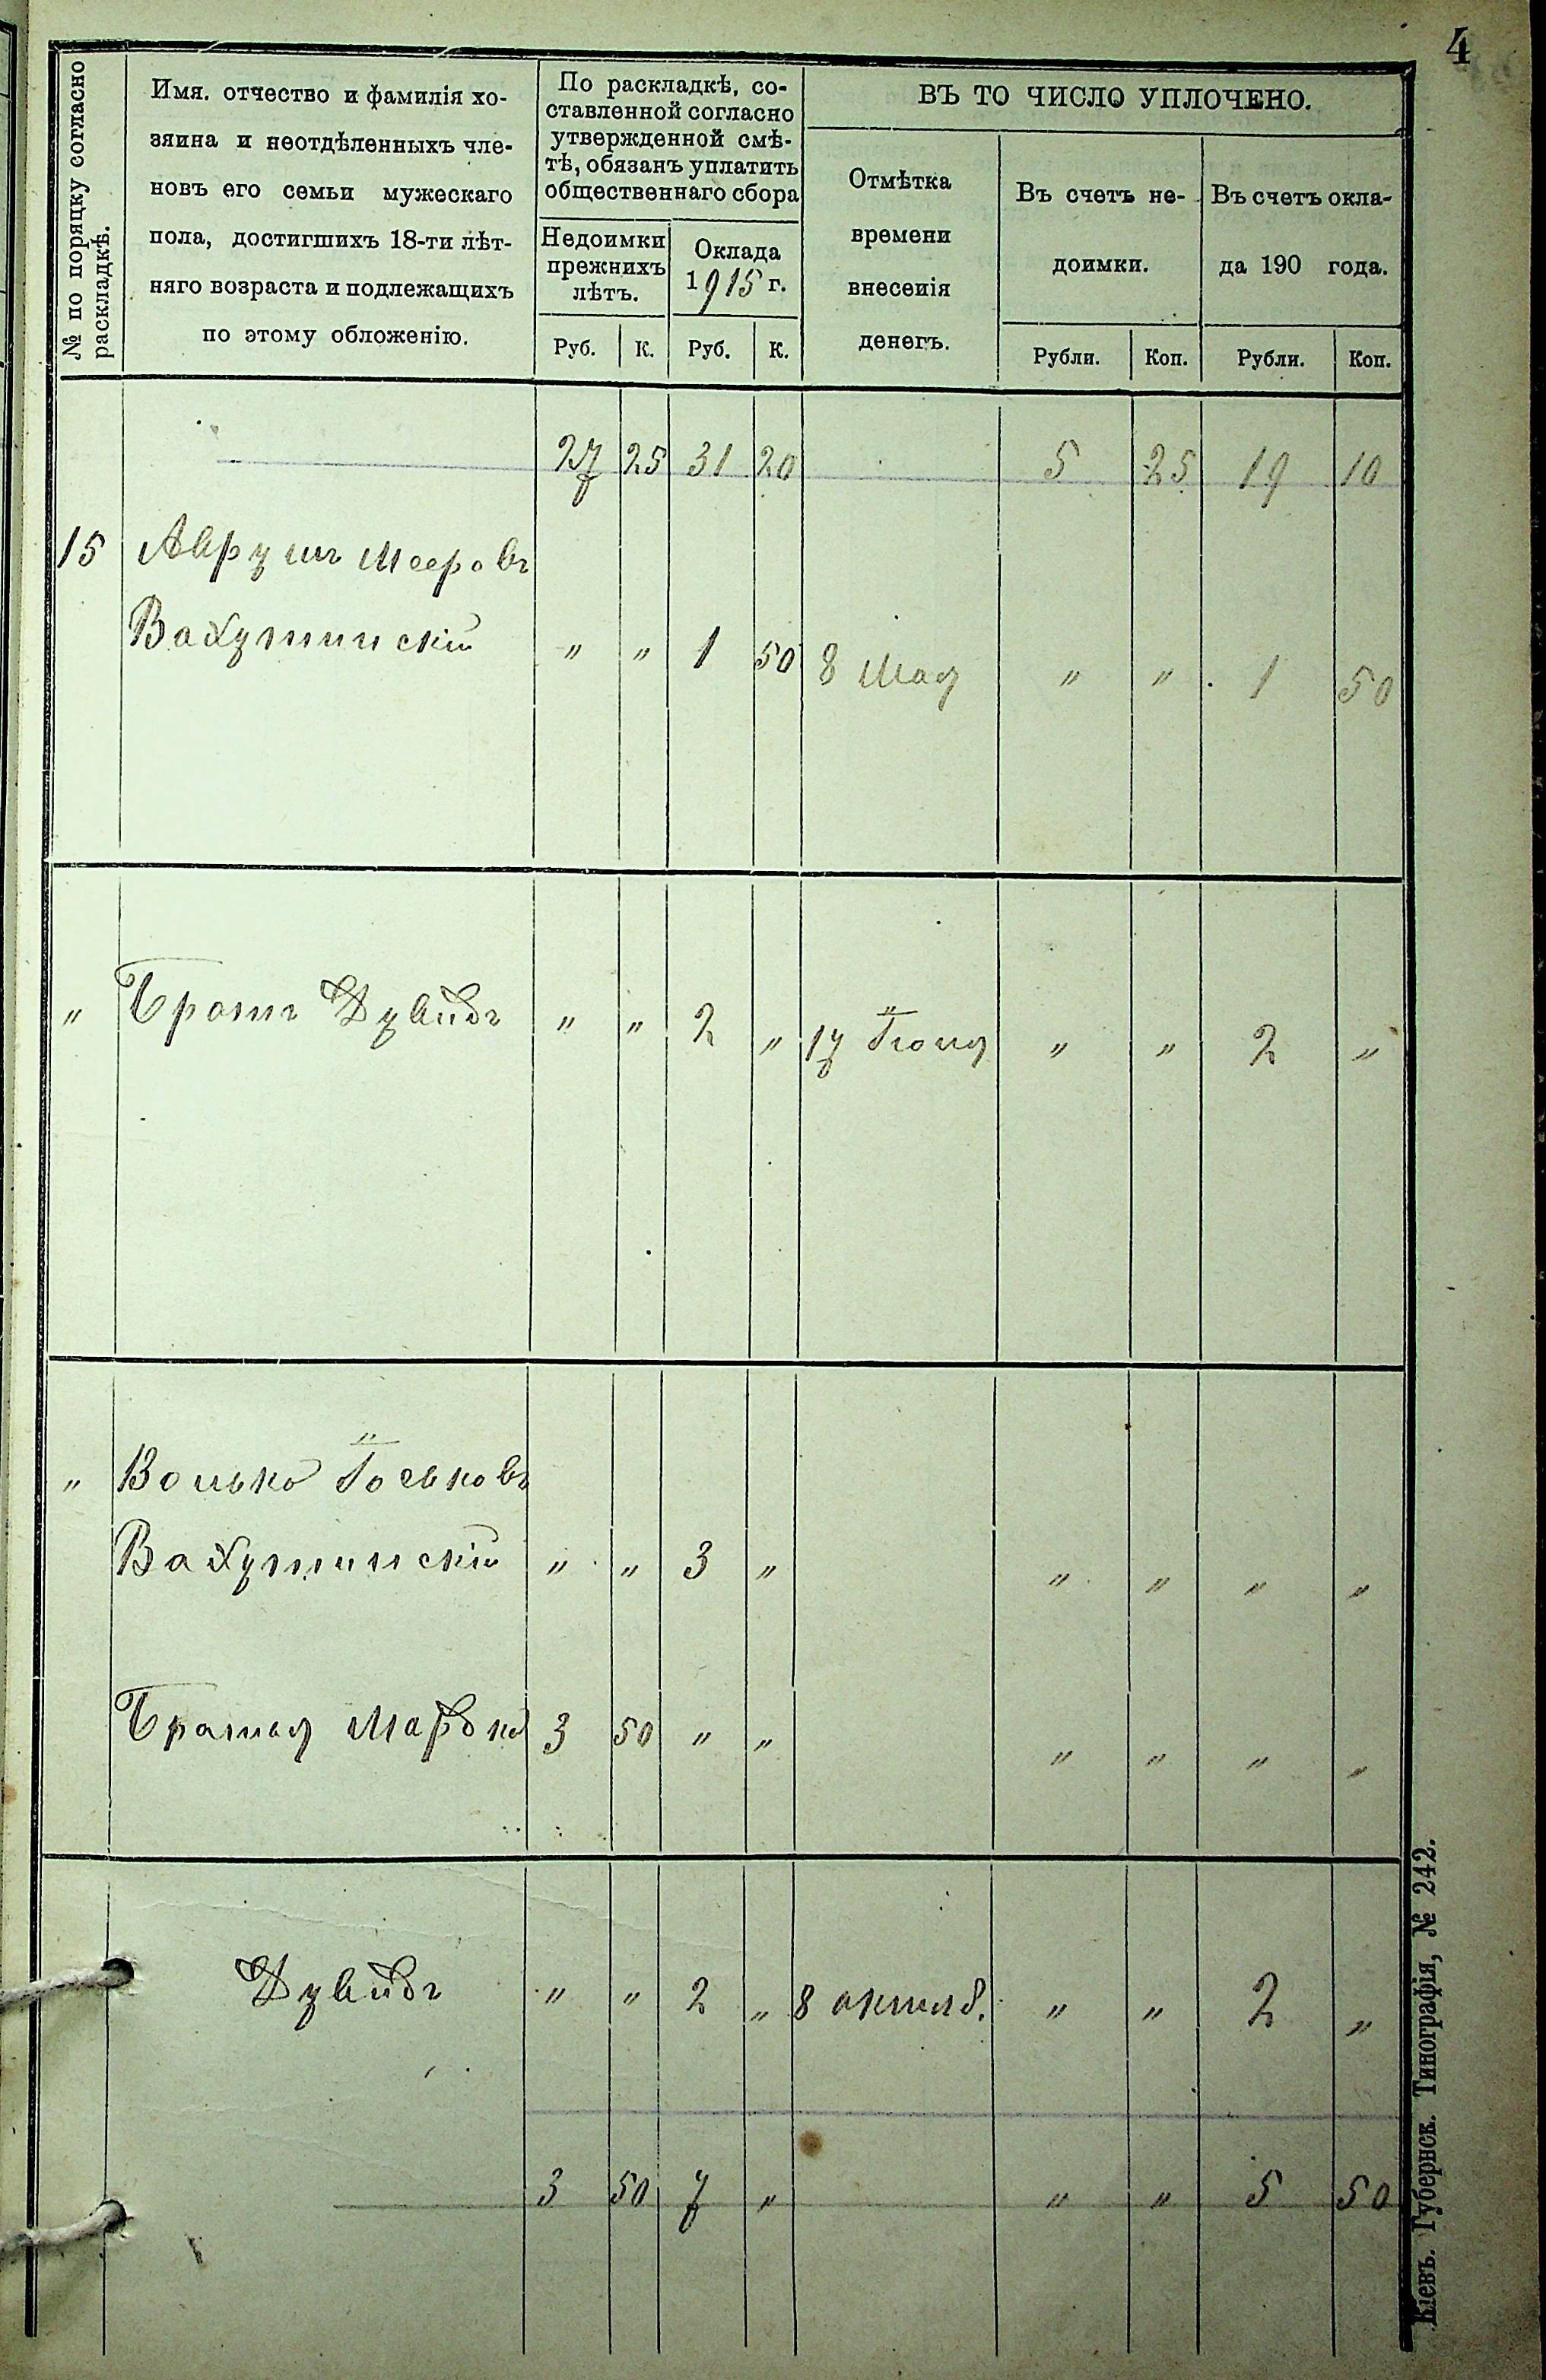 4
№ по поряцку согласно
раскладкѣ.
Имя. отчество и фамилія хо-
зяина и неотдѣленныхъ чле-
новъ его семьи мужескаго
пола, достигшихъ 18-ти лѣт-
няго возраста и подлежащихъ
по этому обложенію.
По раскладкѣ, со-
ставленной согласно
утвержденной смѣ-
тѣ, обязанъ уплатить
общественнаго сбора
Недоимки
прежнихъ
лѣтъ.
Оклада
1915 г.
Руб. К. Руб. К.
ВЪ ТО ЧИСЛО УПЛОЧЕНО.
Отмѣтка
времени
внесенія
денегъ.
Въ счетъ не-
доимки.
Въ счетъ окла-
да 190 года.
Рубли. Коп. Рубли. Коп.
27 25 31 20 5 25 19 10
15 Аврумъ Мееровъ
Вахутинскій " " 1 50 8 Мая " " 1 50
" Братъ Дувидъ " " 2 " 17 Іюня " " 2 "
" Волько Іоськовъ
Вахутинскій " " 3 " " " " "
Братья Мордко 3 50 " " " " " "
Дувидъ " " 2 " 8 октяб. " " 2 "
3 50 7 " " " 5 50
Кіевъ. Губернск. Тинографія, № 242.